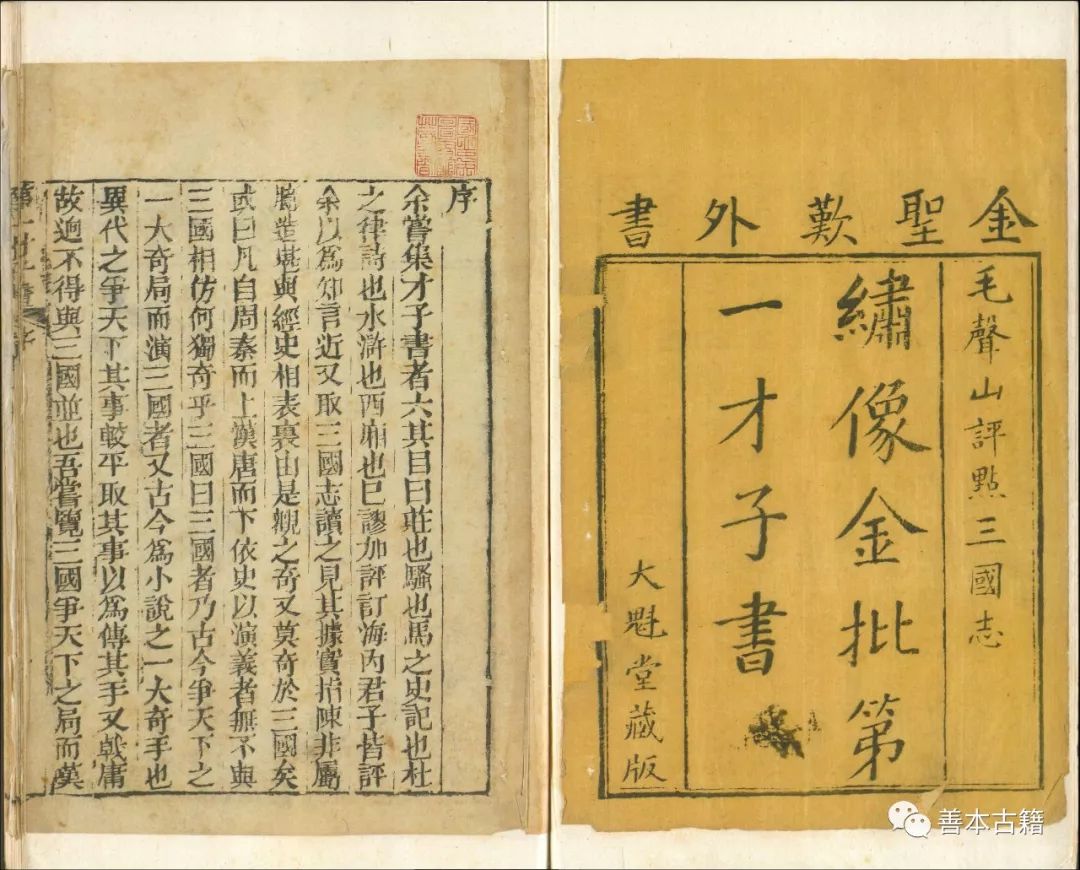 金聖歎外書
毛聲山評點三國志
繡像金批第
一才子書
大魁堂藏版
序
余嘗集才子書者六其目曰莊也騷也馬之史記也杜
之律詩也水滸也西廂也已謬加評訂海內君子皆評
余以為知言近又取三國志讀之見其據實指陳非屬
臆造堪與經史相表裏由是觀之奇又莫奇於三國矣
或曰凡自周秦而上漢唐而下依史以演義者無不與
三國相仿何獨奇乎三國曰三國者乃古今爭天下之
一大奇局而演三國者又古今為小說之一大奇手也
異代之爭天下其事較平取其事以為傳其手又戟庸
故迥不得與三國並也吾嘗覽三國爭天下之局而嘆
善本古籍